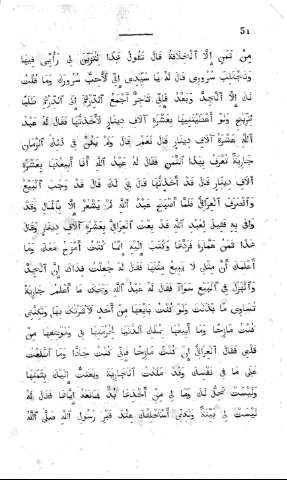 ٥١
مِن ثَمَنٍ إِلَّا الخِلَافَة قَالَ تَقُول هٰذَا لِتُزَيِّن لِى رَأْيِى فِيهَا
وَتَجْتَلِب سُرُورِى قَالَ لَهُ يَا سَيِّدِى إِنِّى لَأُحِبُّ سُرُورَك وَمَا قُلْتُ
لَك إِلَّا الْجِدَّ وَبَعْدُ فَإِنِّى تَاجِرٌ أَجْمَعُ الدِّرَّةَ إِلَى الدِّرَّةِ طَلَبًا
لِلرِّبْحِ وَلَو أَعْطَيْتَنِيهَا بِعَشْرَةِ آلَافِ دِينَارٍ لَأَخَذْتُهَا فَقَالَ لَهُ عَبْدُ
اللّٰه عَشْرَة آلَافِ دِينَارٍ قَالَ نَعَم قَالَ وَلَم يَكُنْ فِى ذٰلِكَ الزَّمَانِ
جَارِيَةٌ تُعْرَف بِهٰذَا الثَّمَنِ فَقَالَ لَهُ عَبْدُ اللّٰه أَنَا أَبِيعُكَهَا بِعَشْرَة
آلَافِ دِينَارٍ قَالَ قَدْ أَخَذْتُهَا قَالَ هِىَ لَك قَالَ قَدْ وَجَبَ الْبَيْعُ
وَانْصَرَفَ الْعِرَاقِىُّ فَلَمَّا أَصْبَحَ عَبْدُ اللّٰه لَم يَشْعُرْ إِلَّا بِالْمَالِ وَقَدْ
وَافَى بِهِ فَقِيلَ لِعَبْدِ اللّٰه قَدْ بَعَثَ الْعِرَاقِىُّ بِعَشْرَة آلَافِ دِينَارٍ وَقَالَ
هٰذَا ثَمَنُ عُمَارَةَ فَرَدَّهَا وَكَتَبَ إِلَيْهِ إِنَّمَا كُنْتُ أَمْزَحُ مَعَكَ وَمَا
أُعْلِمُك أَنَّ مِثْلِى لَا يَبِيعُ مِثْلَهَا فَقَالَ لَهُ جُعِلْتُ فِدَاكَ إِنَّ الْجِدَّ
وَالْهَزْلَ فِى الْبَيْعِ سَوَاءٌ فَقَالَ لَهُ عَبْدُ اللّٰه وَيْحَكَ مَا أَعْلَمُ جَارِيَةً
تُسَاوِى مَا بَذَلْتَ وَلَو كُنْتُ بَائِعَهَا مِنْ أَحَدٍ لَآثَرْتُكَ بِهَا وَلٰكِنِّى
كُنْتُ مَازِحًا وَمَا أَبِيعُهَا بِمُلْكِ الدُّنْيَا لِحُرْمَتِهَا بِى وَمَوْضِعِهَا مِن
قَلْبِى فَقَالَ الْعِرَاقِىُّ إِن كُنْتَ مَازِحًا فَإِنِّى كُنْتُ جَادًّا وَمَا اطَّلَعْتُ
عَلَى مَا فِى نَفْسِكَ وَقَدْ مَلَكْتُ الْجَارِيَةَ وَبَعَثْتُ إِلَيْكَ بِثَمَنِهَا
وَلَيْسَت تَحِلُّ لَكَ وَمَا لِى مِنْ أَخْذِهَا بُدٌّ فَمَانَعَهُ إِيَّاهَا فَقَالَ لَهُ
لَيْسَت لِى بَيِّنَةٌ وَلٰكِنِّى أَسْتَحْلِفُكَ عِنْدَ قَبْرِ رَسُولِ اللّٰهِ صَلَّى اللّٰهُ